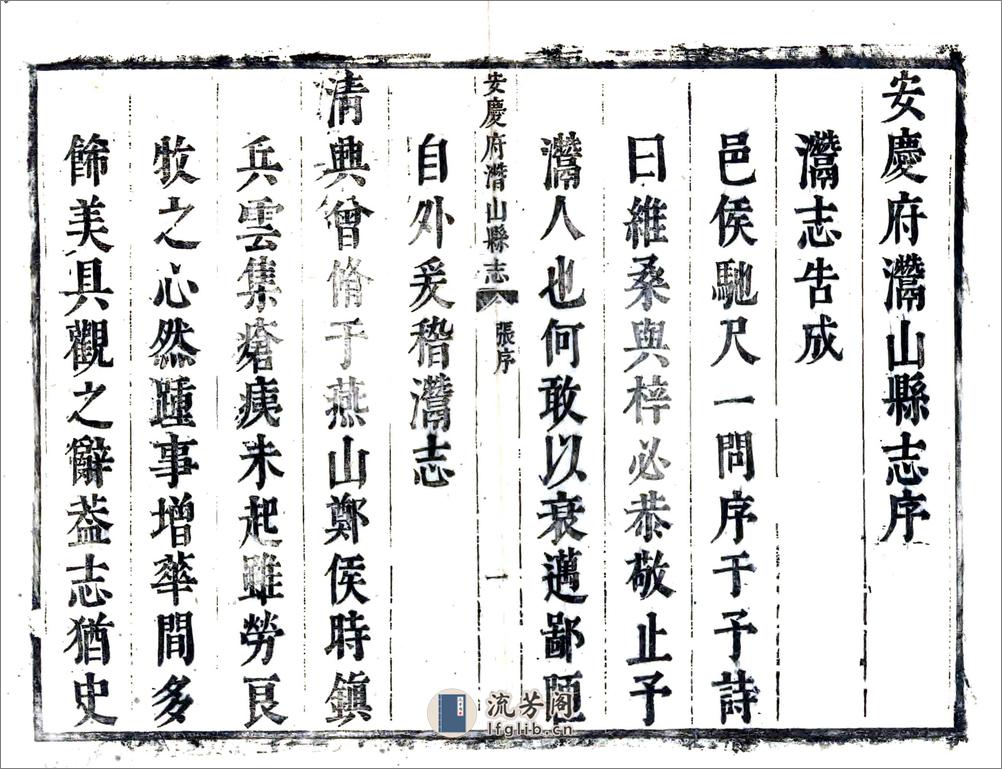 安慶府灊山縣志序
灊志告成
邑侯馳尺一問序于予詩
曰維桑與梓必恭敬止予
灊人也何敢以衰邁鄙陋
自外爰稽灊志
安慶府潛山縣志
張序
一
清興曾脩于燕山鄭侯時鎮
兵雲集瘡痍未起雖勞良
牧之心然踵事增華間多
餙美具觀之辭葢志猶史
流芳阁
lfglib.cn